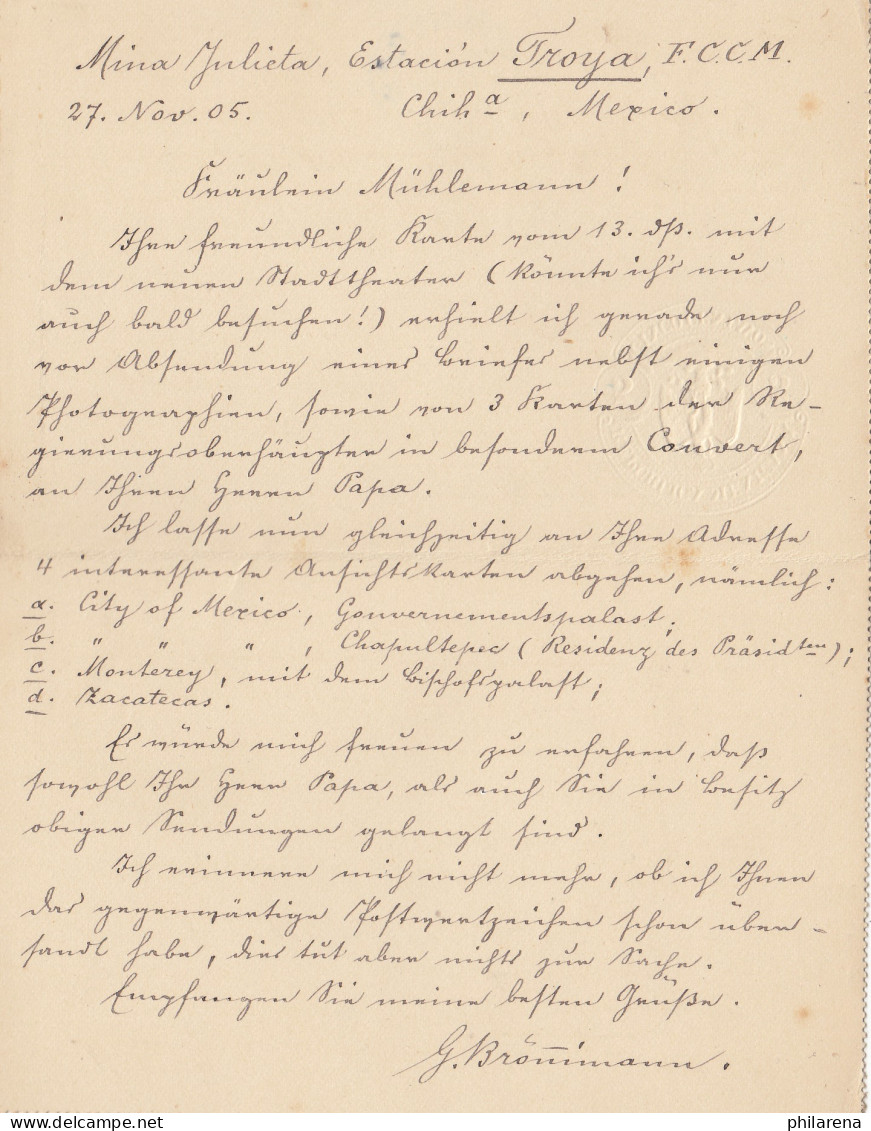 Mina Julieta, Estación Troya, F.C.C.M.
27. Nov. 05. Chihª, Mexico.
Fräulein Mühlemann!
Ihre freundliche Karte vom 13. dß. mit
dem neuen Stadttheater (könnte ich's nur
auch bald besuchen!) erhielt ich gerade noch
vor Absendung eines Briefes nebst einigen
Photographien, sowie von 3 Karten der Re-
gierungsoberhäupter in besonderem Couvert,
an Ihren Herrn Papa.
Ich lasse nun gleichzeitig an Ihre Adresse
4 interessante Ansichtskarten abgehen, nämlich:
a. City of Mexico, Gouvernementspalast;
b. " " " , Chapultepec (Residenz des Präsidten);
c. Monterey, mit dem Bischofspalast;
d. Zacatecas.
Es würde mich freuen zu erfahren, daß
sowohl Ihr Herr Papa, als auch Sie in Besitz
obiger Sendungen gelangt sind.
Ich erinnere mich nicht mehr, ob ich Ihnen
das gegenwärtige Postwertzeichen schon über-
sandt habe, dies tut aber nichts zur Sache.
Empfangen Sie meine besten Grüße.
G. Brönimann.
philarena